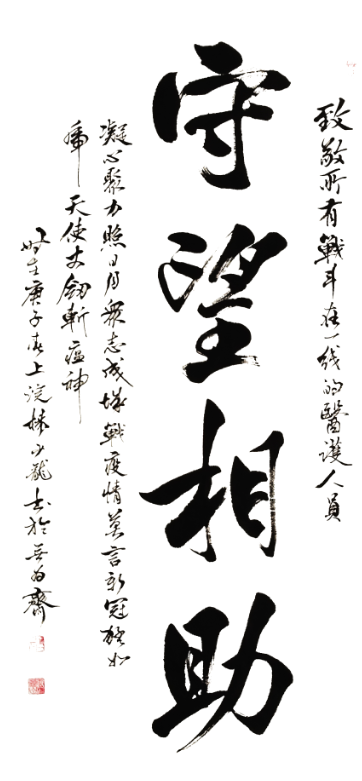 致敬所有戰斗在一线的醫護人員
守望相助
凝心聚力照日月眾志成城戰疫情莫言新冠猛如
虎天使丈劍斬瘟神
時在庚子春上浣林少龍書於無為齋